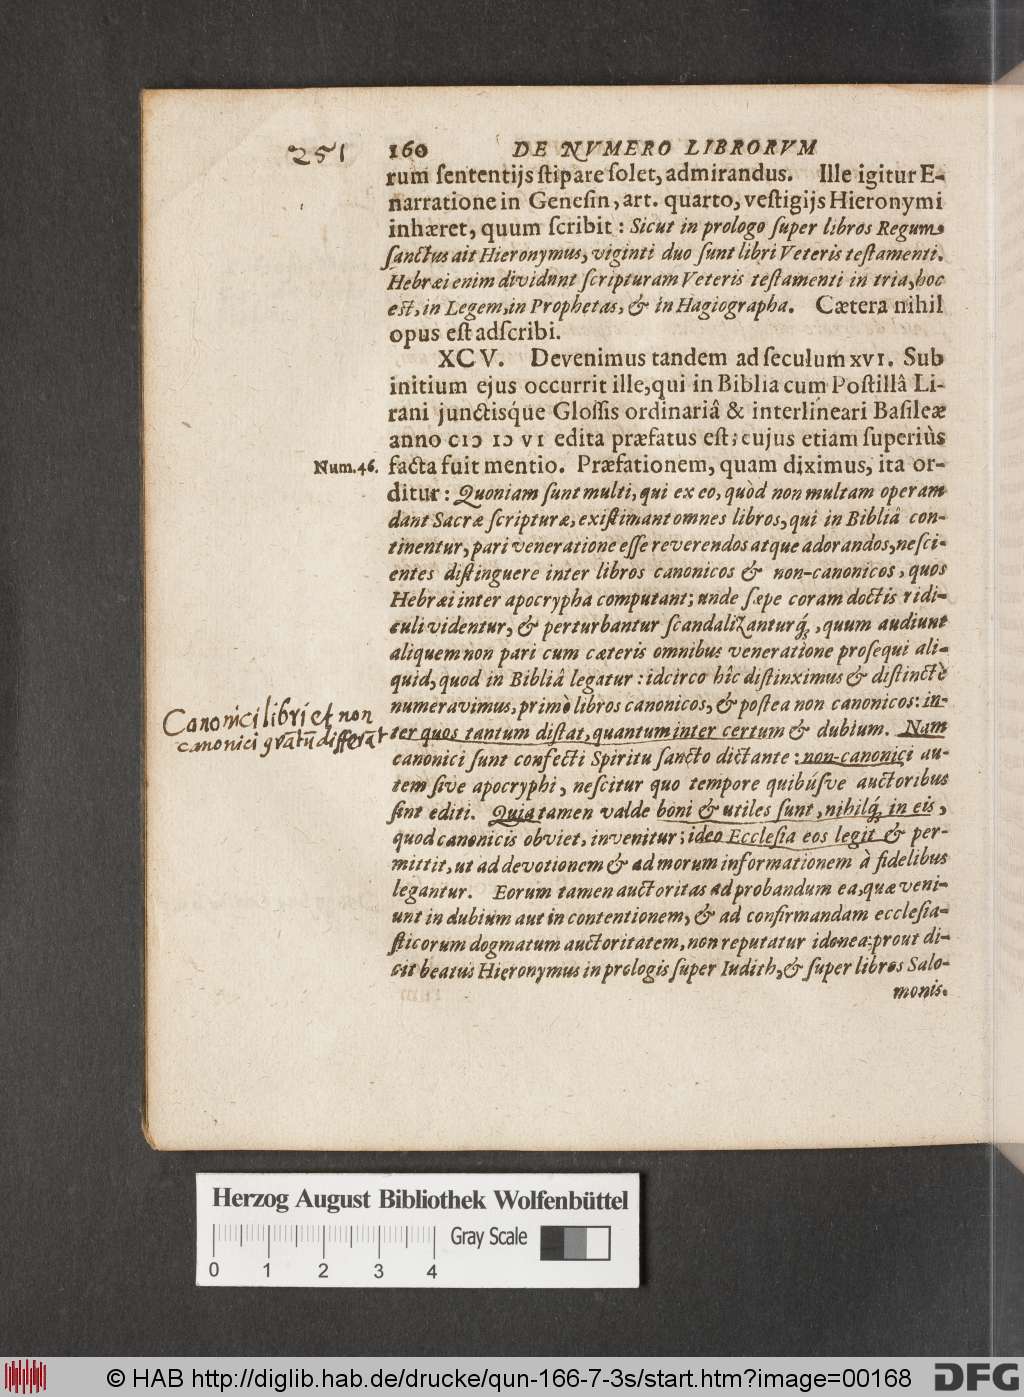 251 160 DE NVMERO LIBRORVM
rum ſententijs ſtipare ſolet, admirandus. Ille igitur E-
narratione in Geneſin, art. quarto, veſtigijs Hieronymi
inhæret, quum ſcribit: Sicut in prologo ſuper libros Regum
ſanctus ait Hieronymus, viginti duo ſunt libri Veteris teſtamenti.
Hebræi enim dividunt ſcripturam Veteris teſtamenti in tria, hoc
eſt, in Legem, in Prophetas, & in Hagiographa. Cætera nihil
opus eſt adſcribi.
XCV. Devenimus tandem ad ſeculum XVI. Sub
initium ejus occurrit ille, qui in Biblia cum Poſtillâ Li-
rani junctisq́ue Gloſſis ordinariâ & interlineari Baſileæ
anno CIↃ IↃ VI edita præfatus eſt; cujus etiam ſuperiùs
Num. 46. facta fuit mentio. Præfationem, quam diximus, ita or-
ditur: Quoniam ſunt multi, qui ex eo, quòd non multam operam
dant Sacræ ſcripturæ, exiſtimant omnes libros, qui in Bibliâ con-
tinentur, pari veneratione eſſe reverendos atque adorandos, neſci-
entes diſtinguere inter libros canonicos & non-canonicos, quos
Hebræi inter apocrypha computant; unde ſæpe coram doctis ridi-
culi videntur, & perturbantur ſcandalizanturq́;, quum audiunt
aliquem non pari cum cæteris omnibus veneratione proſequi ali-
quid, quod in Bibliâ legatur: idcirco hîc diſtinximus & diſtinctè
numeravimus, primò libros canonicos, & poſtea non canonicos: in-
Canonici libri et non
canonici quatũ differãt
ter quos tantum diſtat, quantum inter certum & dubium. Nam
canonici ſunt confecti Spiritu ſancto dictante: non-canonici au-
tem ſive apocryphi, neſcitur quo tempore quibúſve auctoribus
ſint editi. Quia tamen valde boni & utiles ſunt, nihilq́; in eis,
quod canonicis obviet, invenitur; ideo Eccleſia eos legit & per-
mittit, ut ad devotionem & ad morum informationem à fidelibus
legantur. Eorum tamen auctoritas ad probandum ea, quæ veni-
unt in dubium aut in contentionem, & ad confirmandam eccleſia-
ſticorum dogmatum auctoritatem, non reputatur idonea: prout di-
cit beatus Hieronymus in prologis ſuper Iudith, & ſuper libros Salo-
monis.
Herzog August Bibliothek Wolfenbüttel
Gray Scale
0 1 2 3 4
© HAB http://diglib.hab.de/drucke/qun-166-7-3s/start.htm?image=00168 DFG